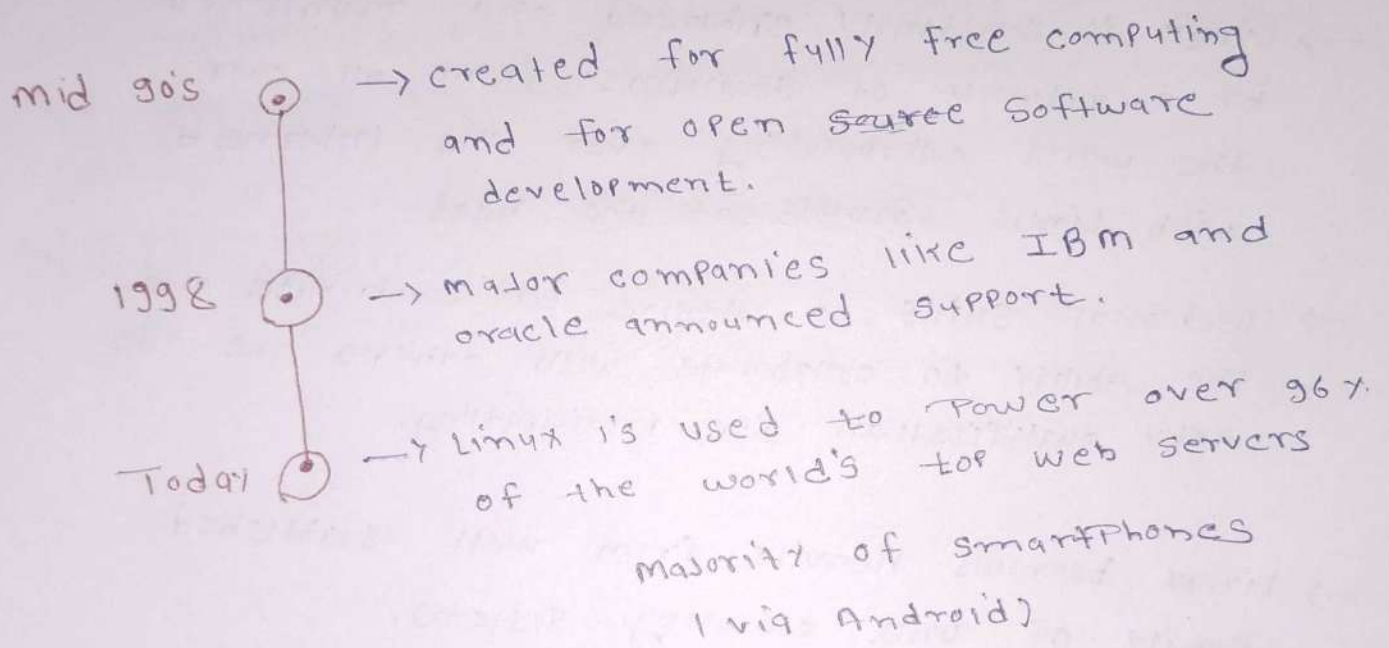 mid 90's → created for fully free computing
and for open source software
development.
1998 → major companies like IBM and
oracle announced support.
Today → Linux is used to power over 96%
of the world's top web servers
majority of smartphones
(via Android)